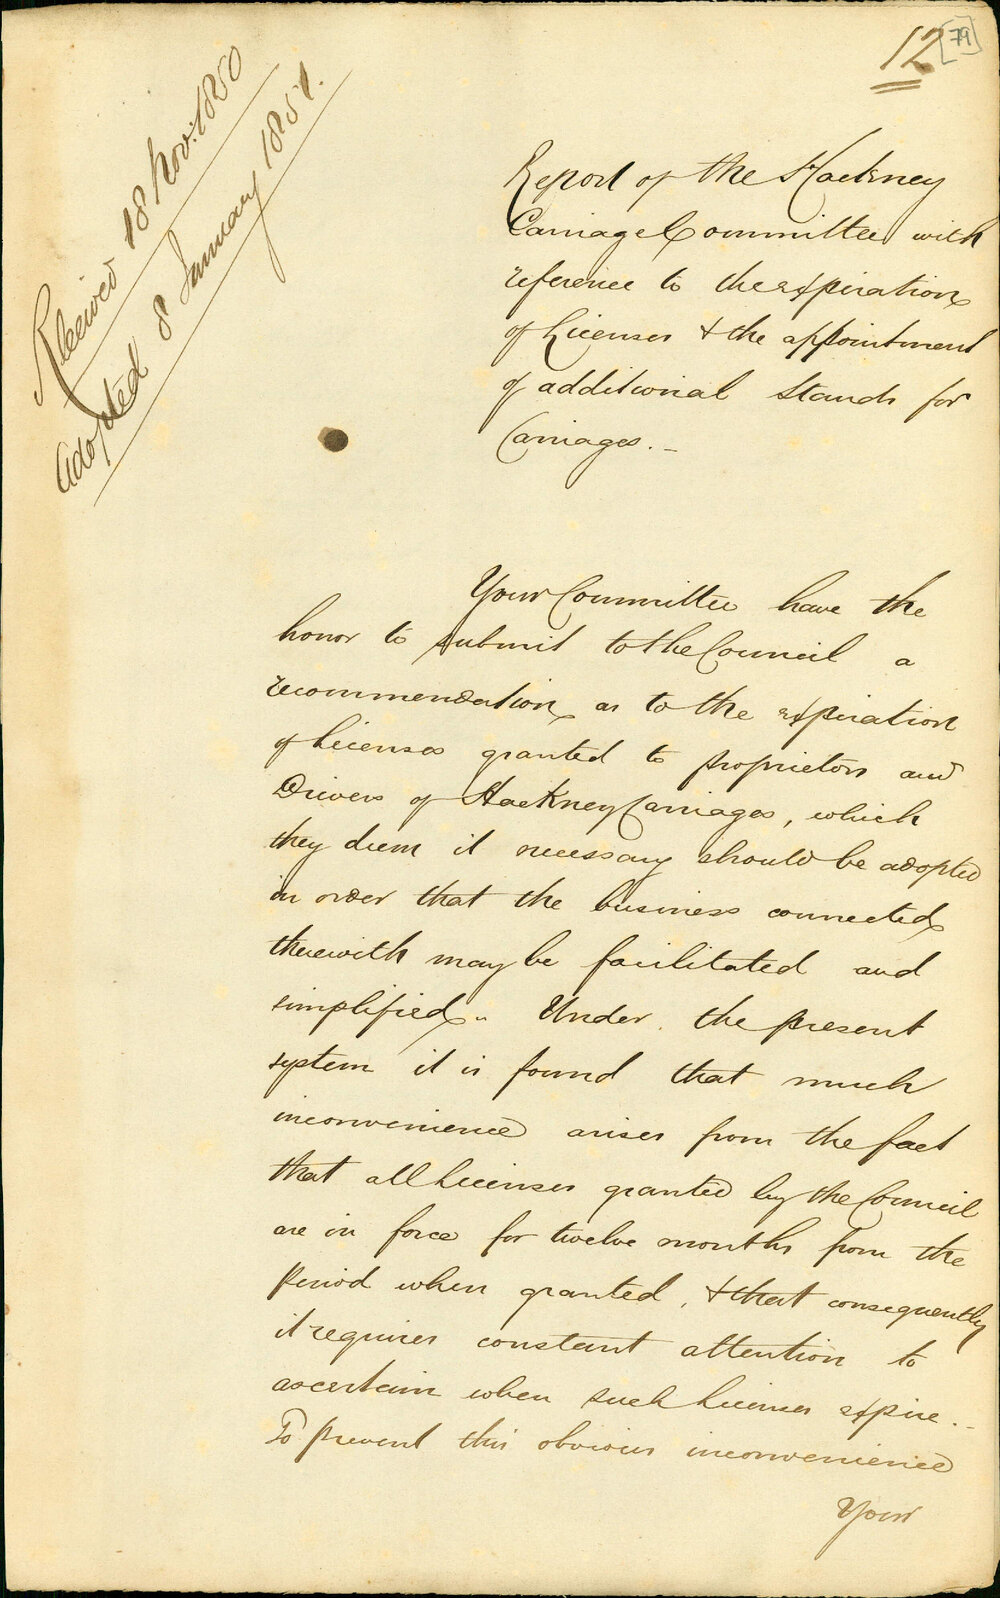 12
[79]
Received 18 Nov: 1850
Adopted 8 January 1851.
Report of the Hackney
Carriage Committee with
reference to the expiration
of Licenses & the appointment
of additional Stands for
Carriages. _
Your Committee have the
honor to submit to the Council a
recommendation as to the expiration
of Licenses granted to proprietors and
Drivers of Hackney Carriages, which
they deem it necessary should be adopted
in order that the business connected
therewith may be facilitated and
simplified. Under the present
system it is found that much
inconvenience arises from the fact
that all Licenses granted by the Council
are in force for twelve months from the
period when granted, & that consequently
it requires constant attention to
ascertain when such Licenses expire. _
To prevent this obvious inconvenience
Your